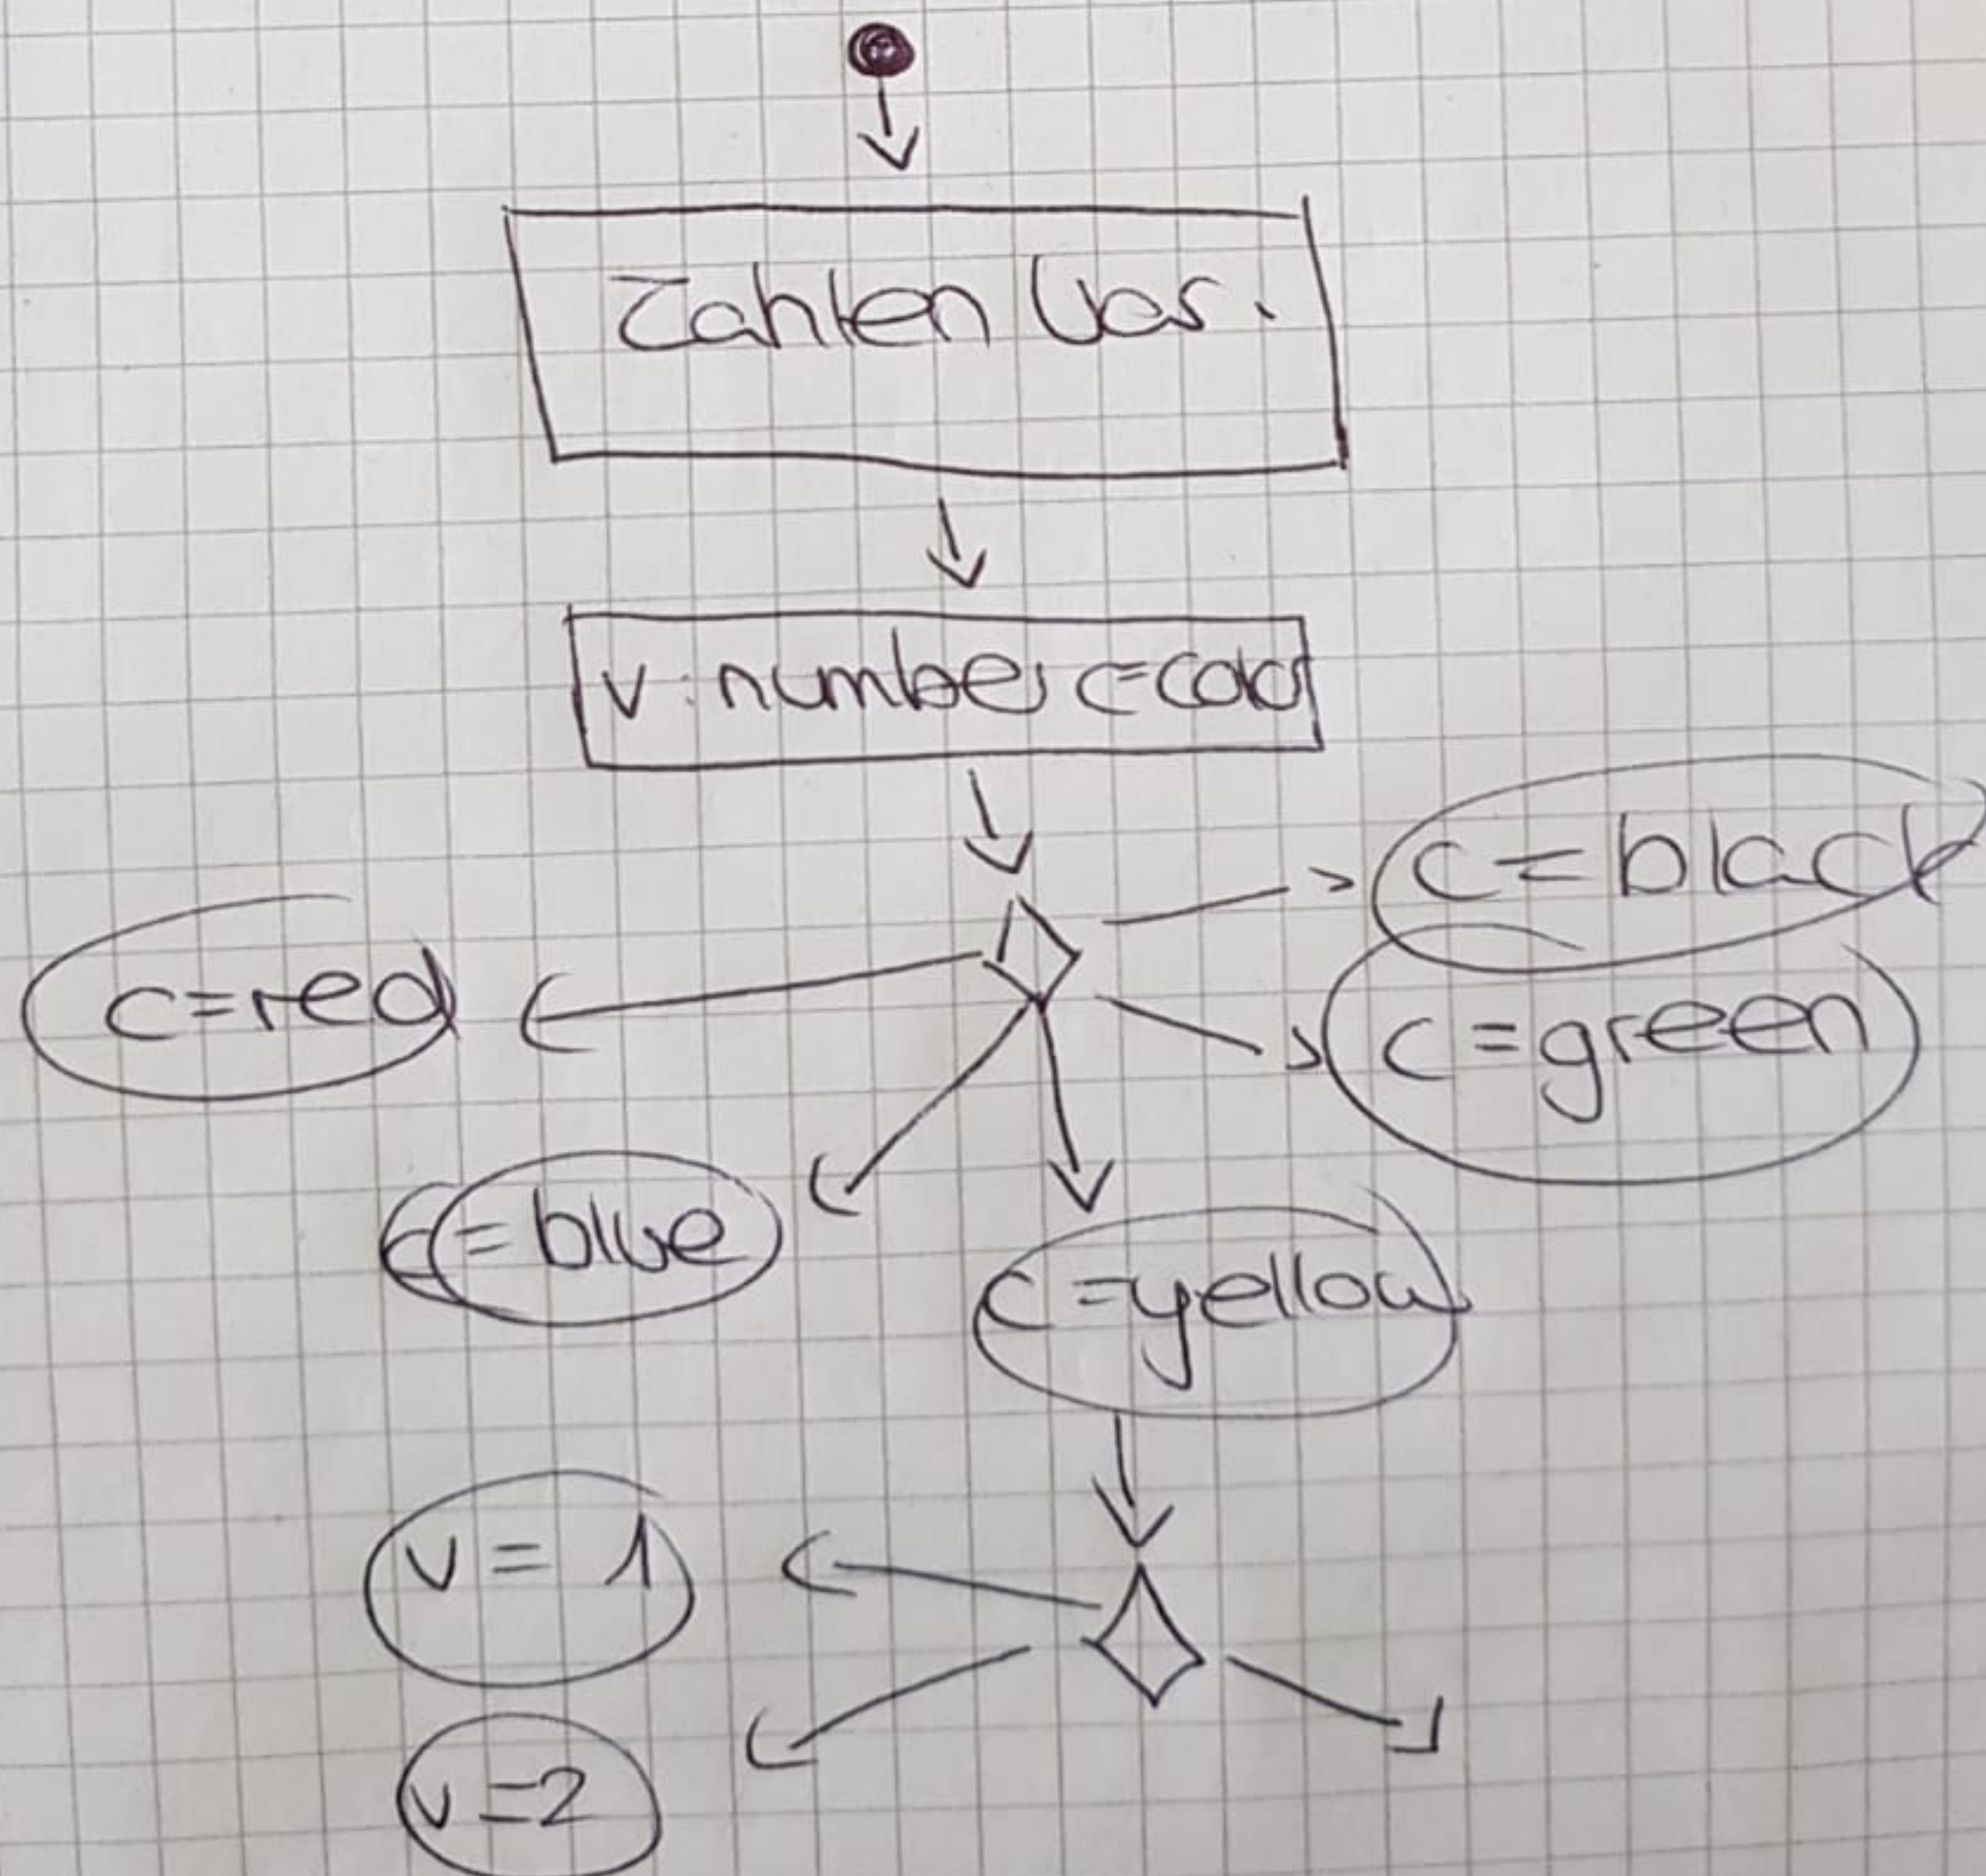 Zahlen Var.
v: number c=color
c=black
c=red
c=green
c=blue
c=yellow
v = 1
v=2